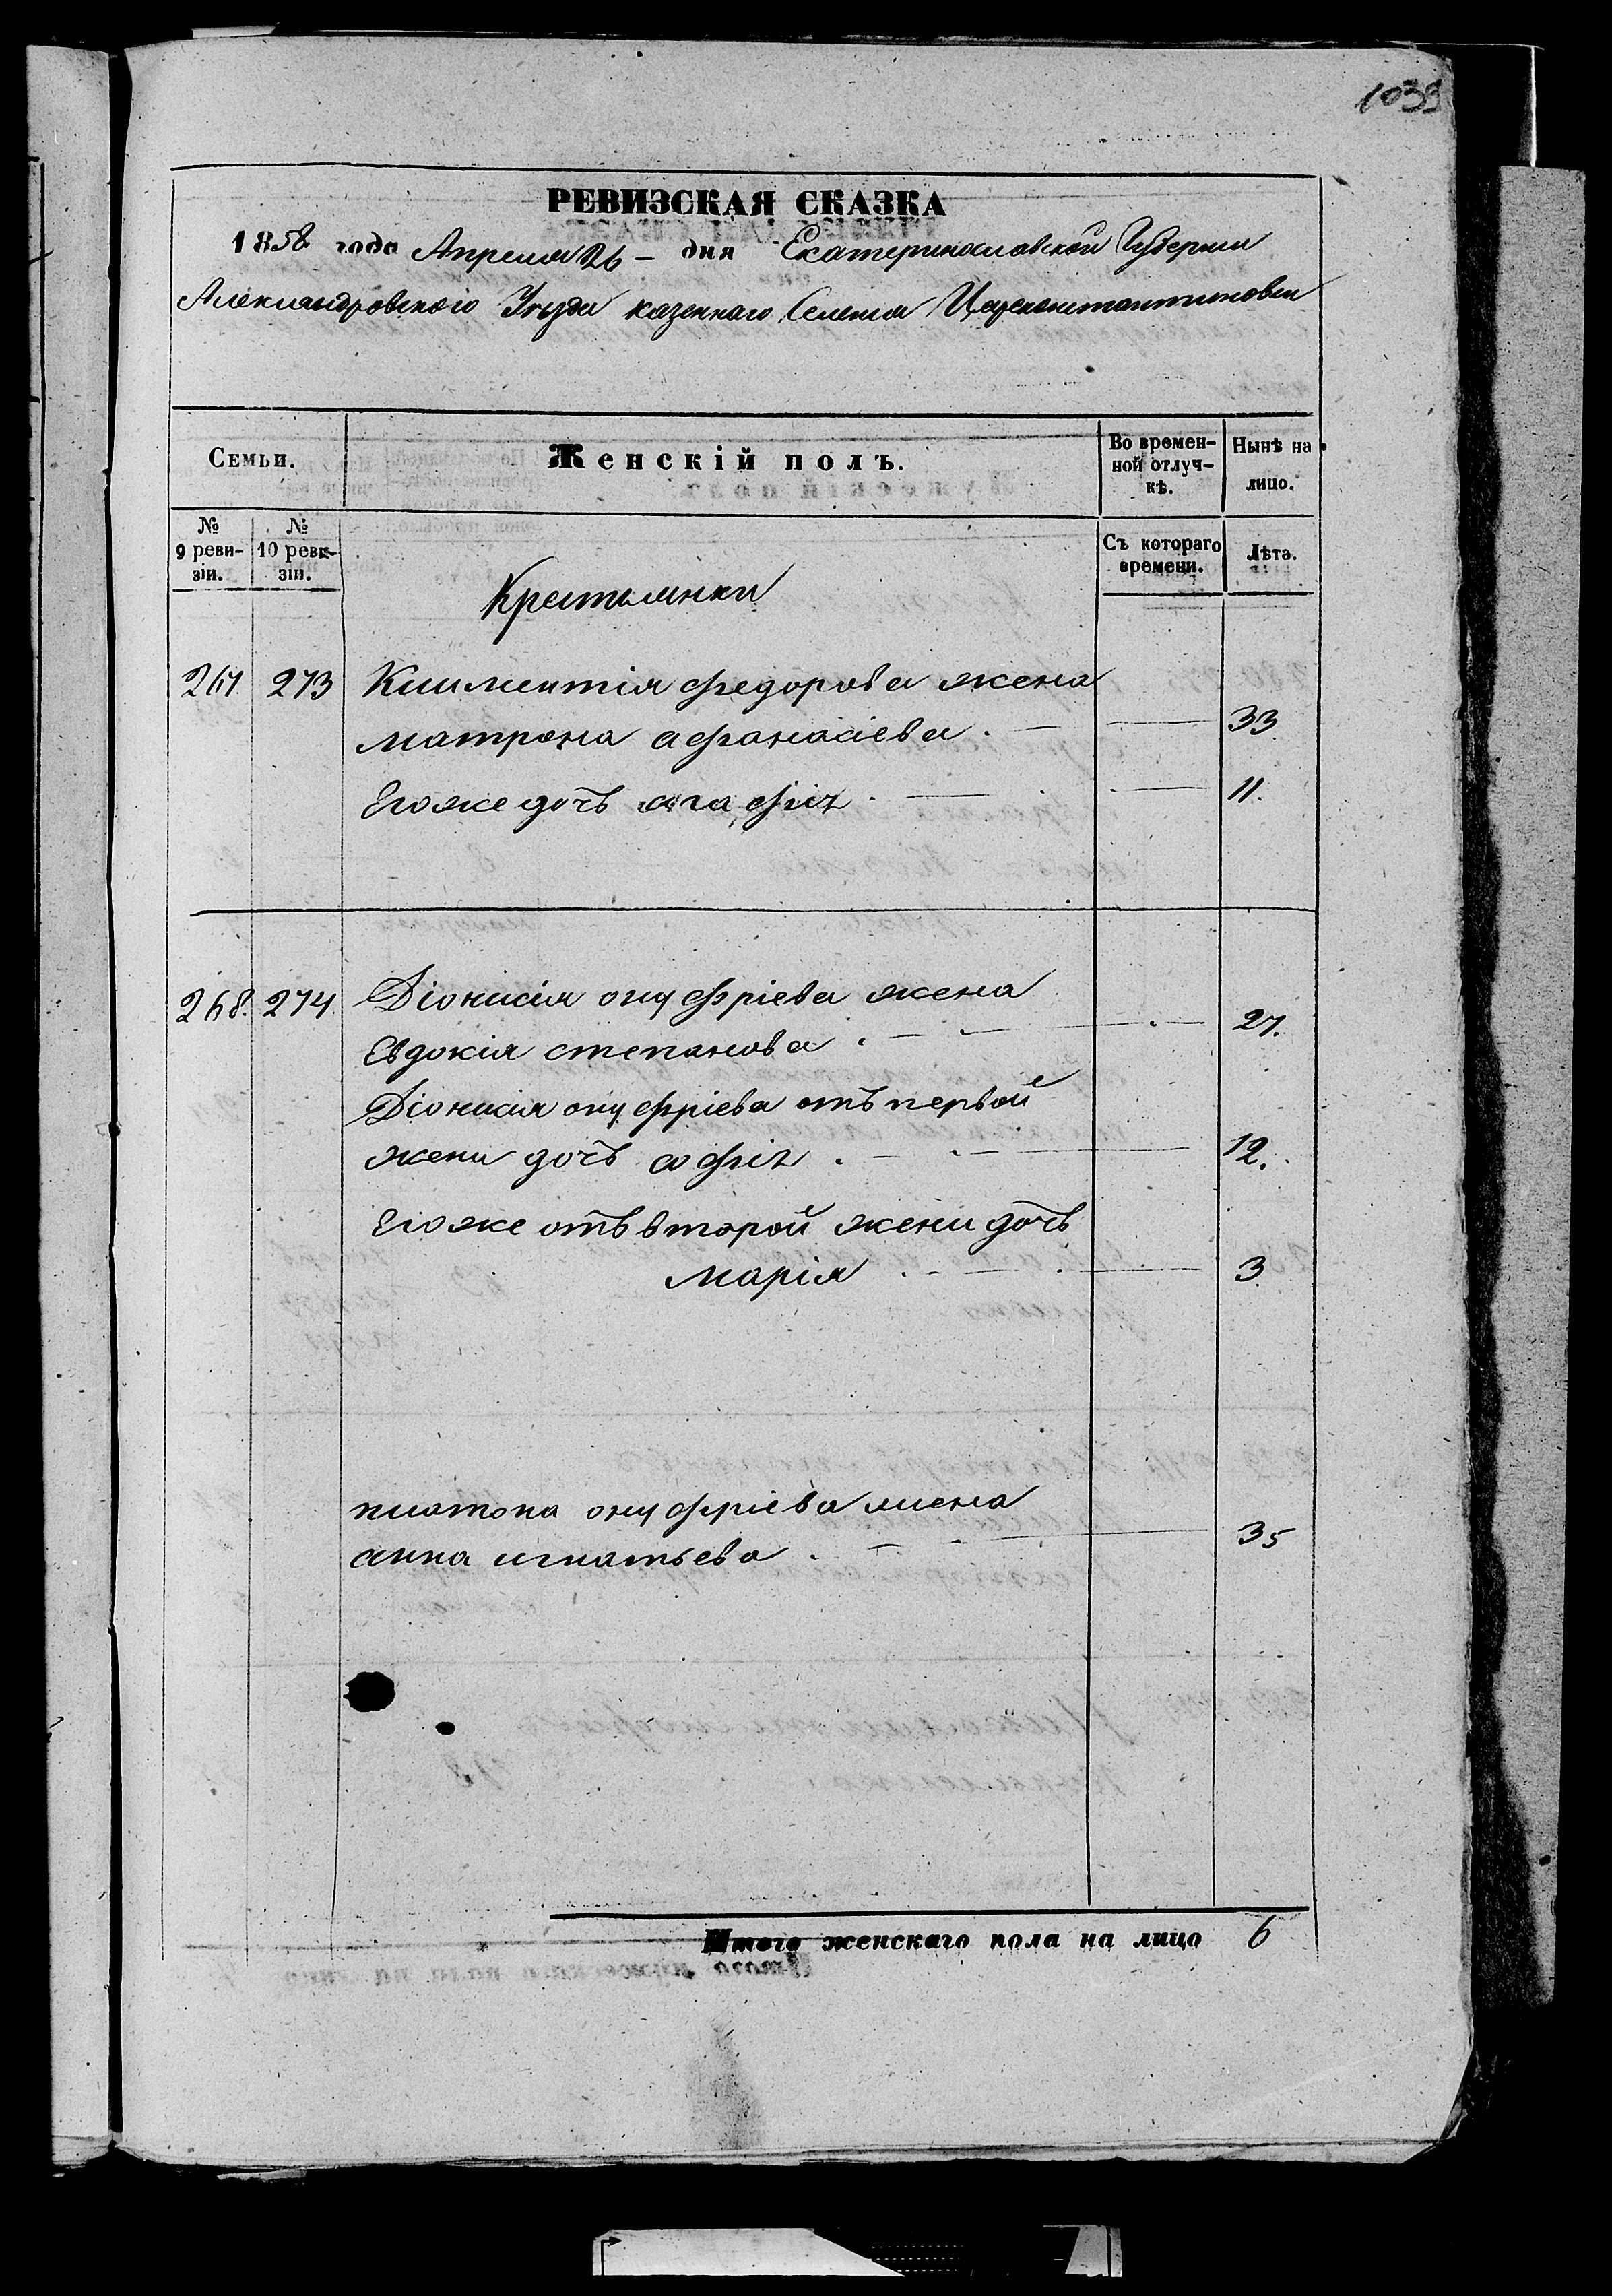 1039
РЕВИЗСКАЯ СКАЗКА
1858 года Апреля 26 – дня Екатеринославской Губернии
Александровского Уезда казеннаго Селения Цареконстантиновки
Семьи.
Женскій полъ.
Во времен-
ной отлуч-
кѣ.
Нынѣ на
лицо.
№
9 реви-
зіи.
№
10 реви-
зіи.
Съ котораго
времени.
Лѣта.
Крестьянки
267 273 Климентія федорова жена
матрона афанасіева. 33
Егоже дочь агафія. 11.
268. 274 Діонисія онуфріева жена
Евдокія степанова. 27.
Діонисія онуфріева отъ первой
жени дочь софія. 12.
Егоже отъ второй жени дочь
марія. 3
платона онуфріева жена
анна игнатьева. 35
Итого женскаго пола на лицо 6